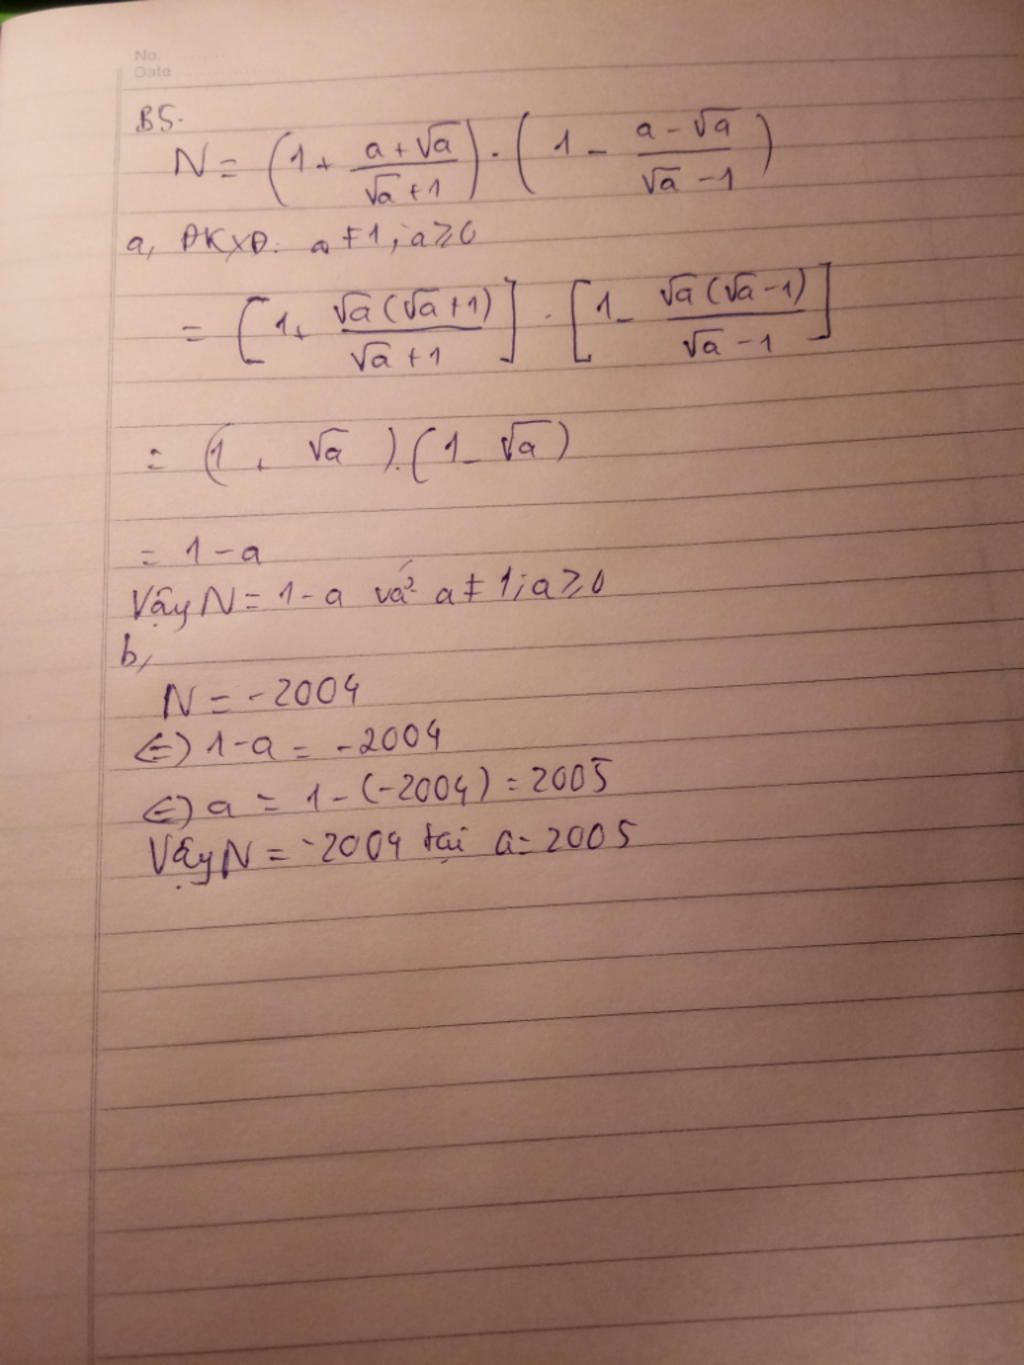 No.
Date
B5.
N = (1 + (a + √a)/(√a + 1)) . (1 - (a - √a)/(√a - 1))
a, ĐKXĐ: a ≠ 1; a ≥ 0
= [1 + √a(√a + 1)/(√a + 1)] . [1 - √a(√a - 1)/(√a - 1)]
= (1 + √a).(1 - √a)
= 1 - a
Vậy N = 1 - a a ≠ 1; a ≥ 0
b,
N = -2004
⇔ 1 - a = -2004
⇔ a = 1 - (-2004) = 2005
Vậy N = -2004 tại a = 2005